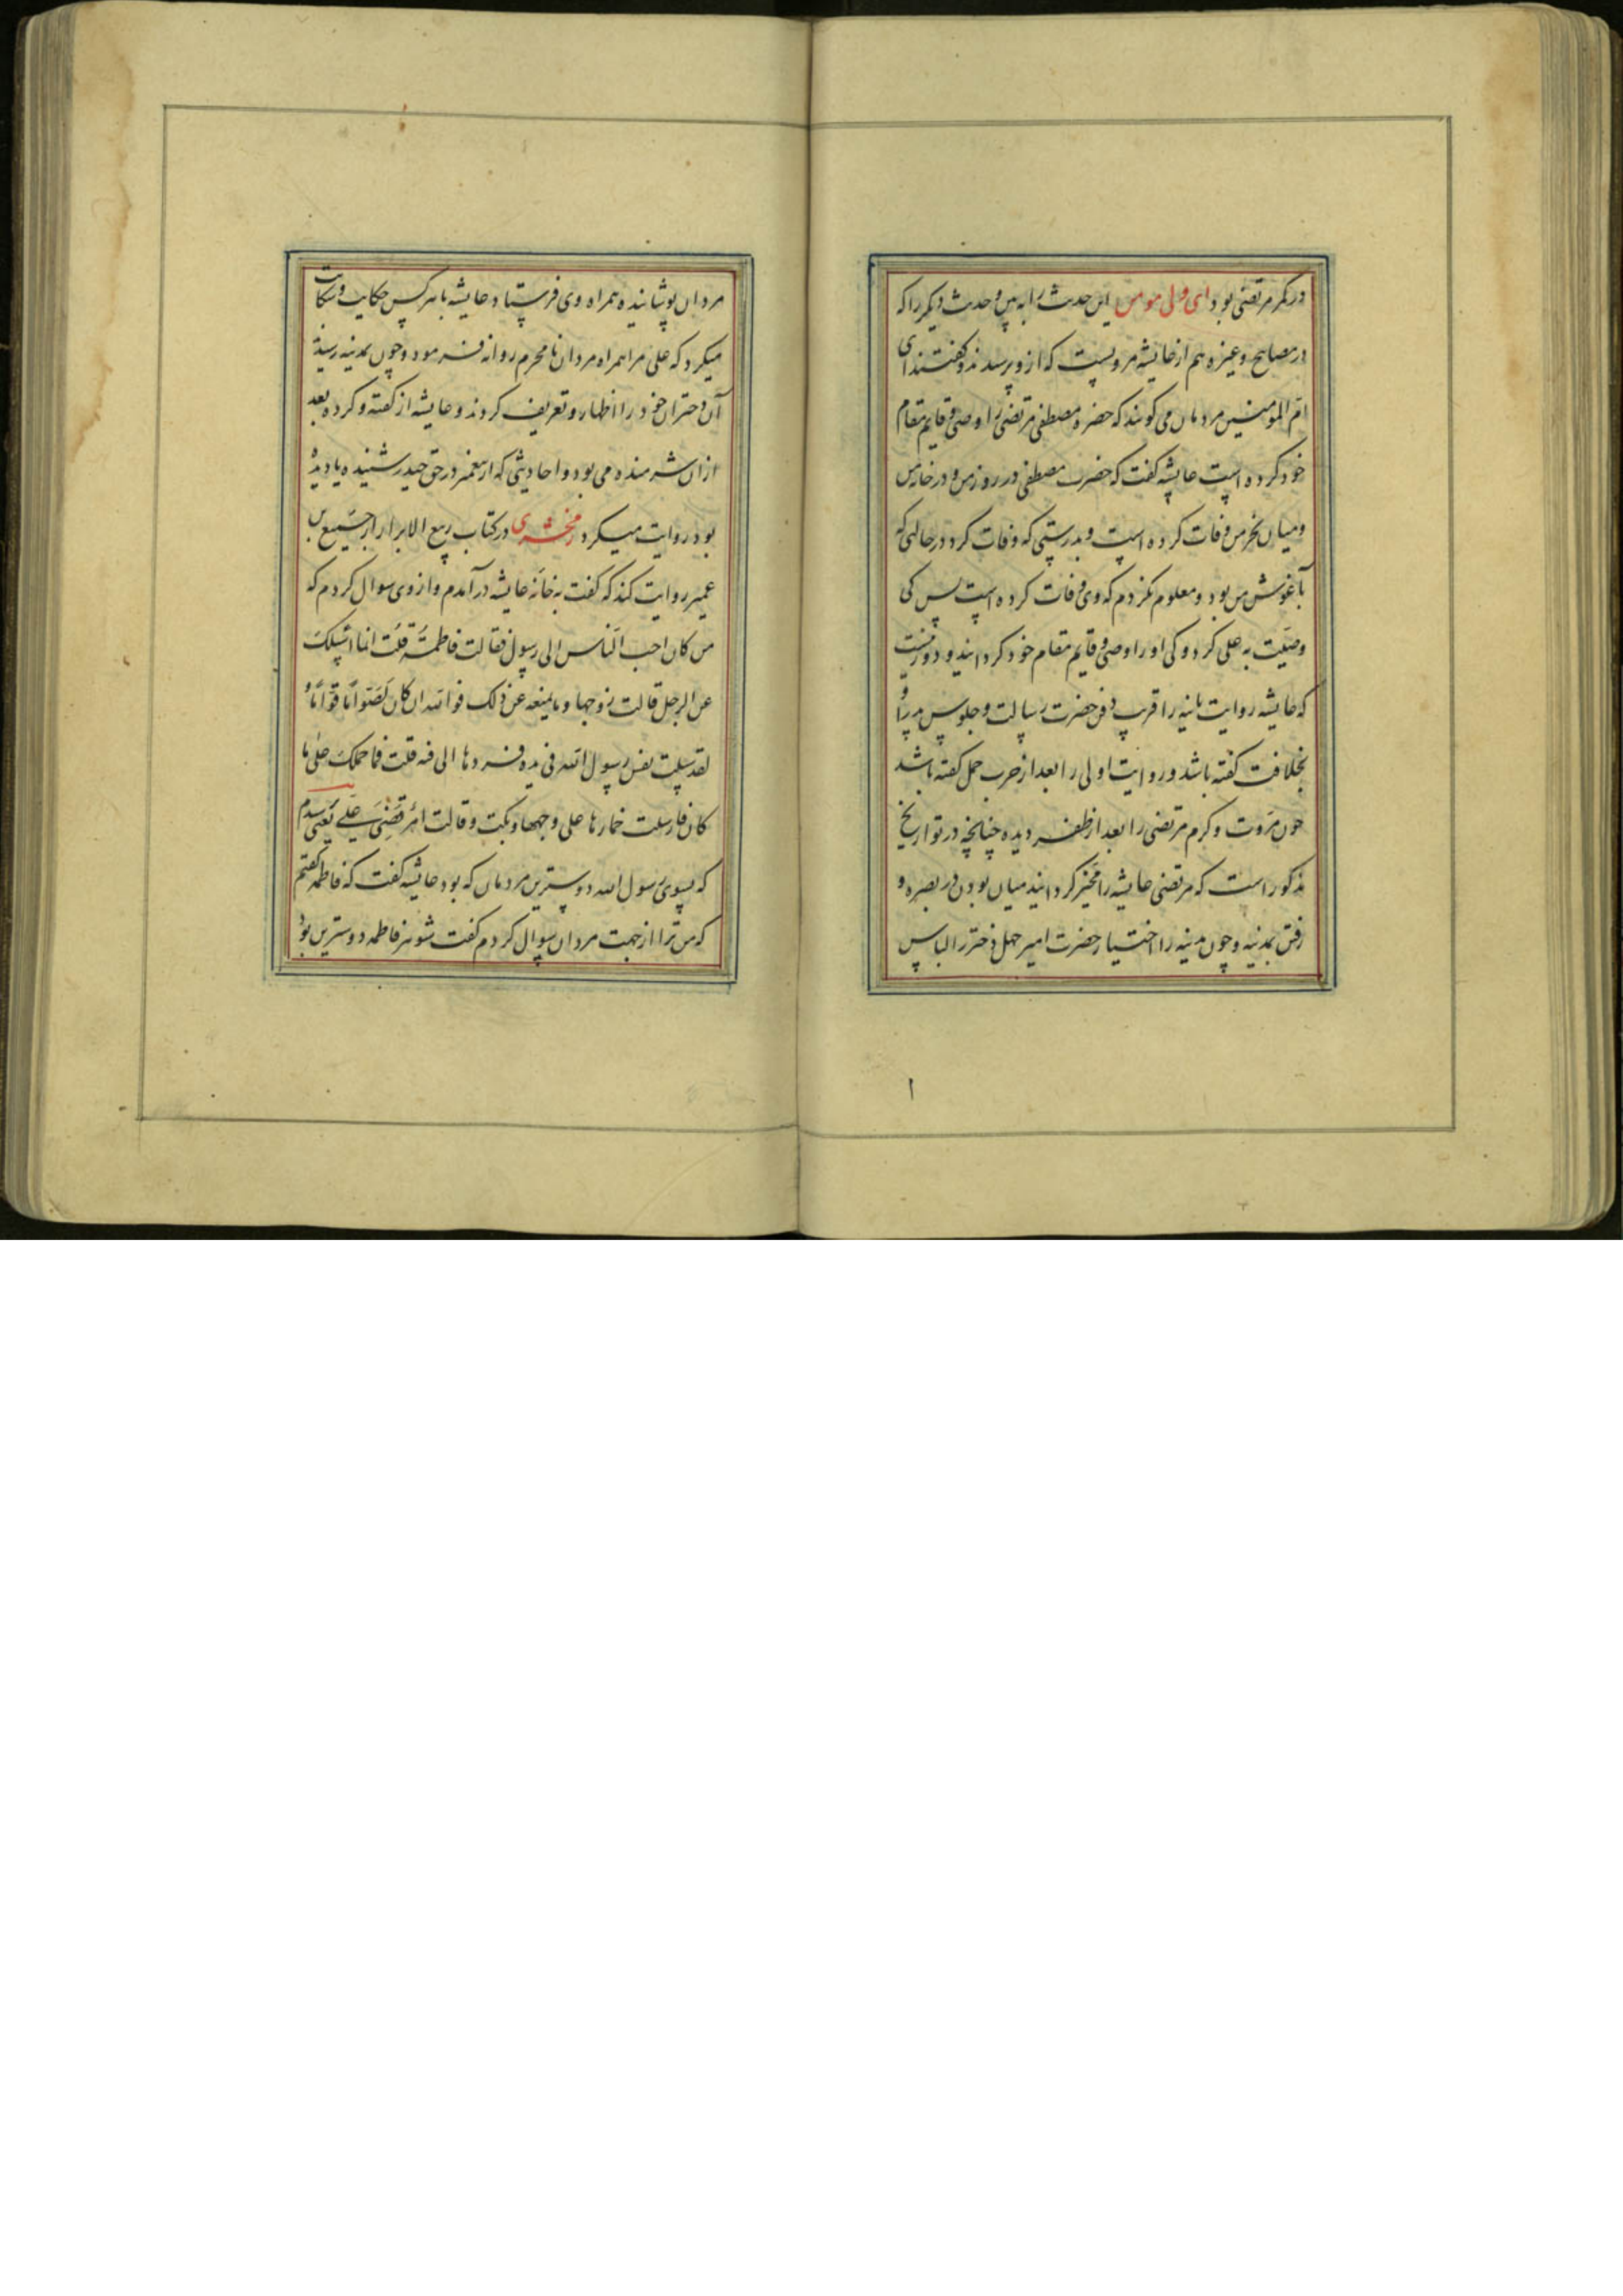 در کمر مرتضی بود ای ولی مومن این حدیث را به بین و حدیث دیگر را که
در مصابیح و غیره هم از عایشه مرویست که ازو پرسیدند و گفتند ای
ام المومنین مردمان می کویند که حضرة مصطفی مرتضی را وصی و قایم مقام
خود کرده است عایشه کفت که حضرت مصطفی در روز من و در خانه من
و میان نحر من وفات کرده است و بدرستی که وفات کرد در حالتی که
بآغوش من بود و معلوم نکردم که وی وفات کرده است پس کی
وصیت به علی کرد و کی او را وصی و قایم مقام خود کردانید و دور نیست
که عایشه روایت ثانیه را قریب دفن حضرت رسالت و جلوس پدر را
بخلافت کفته باشد و روایت اولی را بعد از حرب جمل کفته باشد
چون مروت و کرم مرتضی را بعد از ظفر دیده چنانچه در تواریخ
مذکور است که مرتضی عایشه را مخیر کردانید میان بودن در بصره و
رفتن بمدینه و چون مدینه را اختیار حضرت امیر چهل دختر را لباس
۱
مردان پوشانیده همراه وی فرستاد عایشه با هر کس حکایت و شکایت
میکرد که علی مرا همراه مردان نامحرم روانه فرمود و چون بمدینه رسید
آن دختران خود را اظهار و تعریف کردند و عایشه از کفته و کرده بعد
ازان شرمنده می بود و احادیثی که از پیغمبر در حق حیدر شنیده یا دیده
بود روایت میکرد زمخشری در کتاب ربیع الابرار از جمیع بن
عمیر روایت کند که کفت به خانه عایشه درآمدم و از وی سوال کردم که
من کان احب الناس الی رسول فقالت فاطمة قلت انما اسئلک
عن الرجل قالت زوجها و ما یمنعه عن ذلک فوالله ان کان لصواما قواما و
لقد سلیت نفس رسول الله فی یده فردها الی فیه قلت فما حملک علی ما
کان فارسلت خمارها علی وجهها و بکت و قالت امر قضی علی یعنی پرسیدم
که بسوی رسول الله دوسترین مردمان که بود عایشه کفت که فاطمه کفتم
که من ترا از جهت مردان سوال کردم کفت شوهر فاطمه دوسترین بود